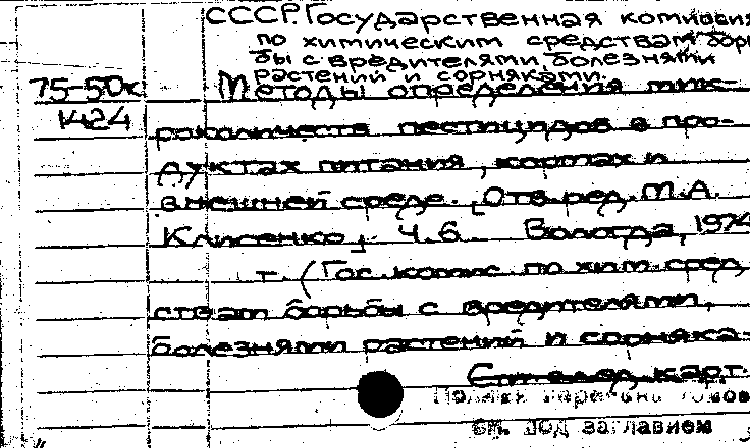 СССР. Государственная комиссия
по химическим средствам борь-
бы с вредителями, болезнями
растений и сорняками.
75-50к Методы определения мик-
1424 роколичеств пестицидов в про-
дуктах питания, кормах и
внешней среде. [Отв. ред. М.А.
Клисенко]. Ч.6. Вологда, 1974
т. (Гос. комис. по хим. сред
ствам борьбы с вредителями,
болезнями растений и сорняка-
См. след. карт.
Полный перечень томов
см. под заглавием